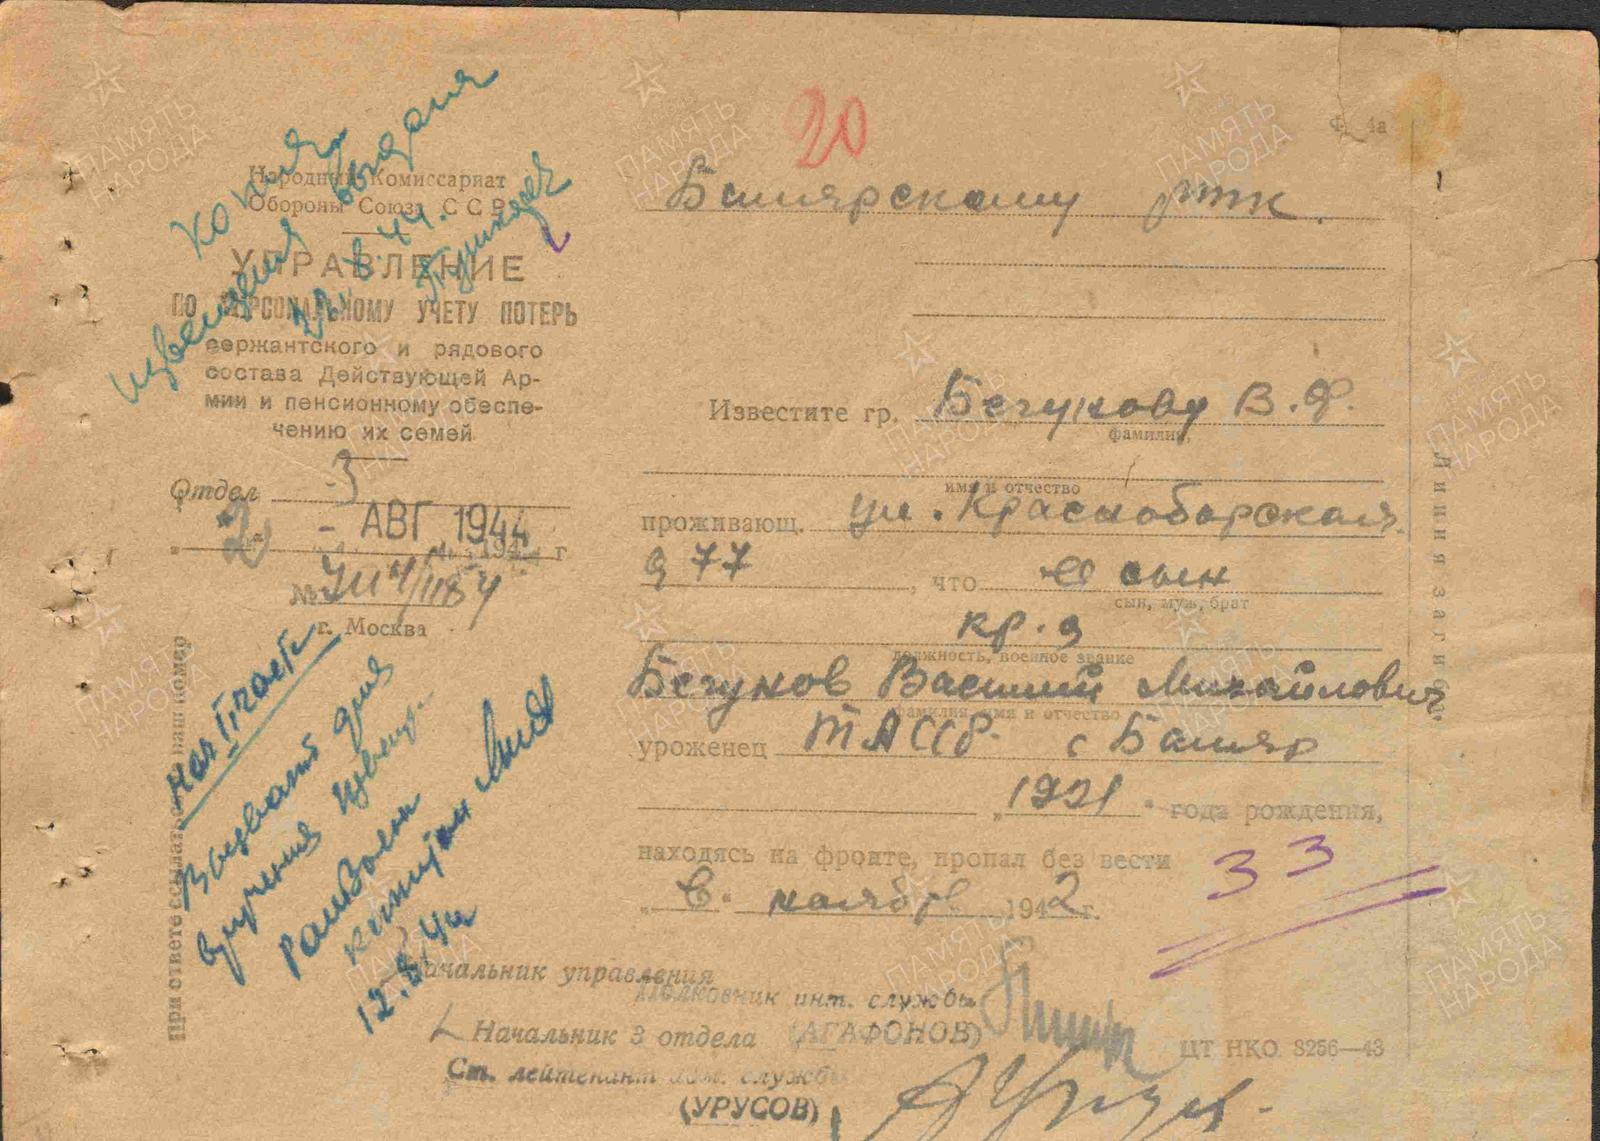 20
Ф. 4а
Народный Комиссариат
Обороны Союза ССР
УПРАВЛЕНИЕ
ПО ПЕРСОНАЛЬНОМУ УЧЕТУ ПОТЕРЬ
сержантского и рядового
состава Действующей Ар-
мии и пенсионному обеспе-
чению их семей
Отдел 3
2 - АВГ 1944
194 г
№
г. Москва
копия
извещения выдана
22.8.44.
При ответе ссылаться на наш номер
нач II части
Вызвать для
вручения извещ.
капитан
12.8.44
Билярскому РВК.
Известите гр. Бегунову В.Ф.
фамилия,
имя и отчество
проживающ. ул. Красноборская
д 77, что её сын
сын, муж, брат
кр-ц
должность, военное звание
Бегунов Василий Михайлович
фамилия, имя и отчество
уроженец ТАССР с Биляр
"1921" года рождения,
находясь на фронте, пропал без вести
33
"в" ноябре 1942 г.
Начальник управления
Полковник инт. службы
Начальник 3 отдела (АГАФОНОВ)
Ст. лейтенант адм. службы
(УРУСОВ)
ЦТ НКО 3256—43
Линия загиба
ПАМЯТЬ
НАРОДА